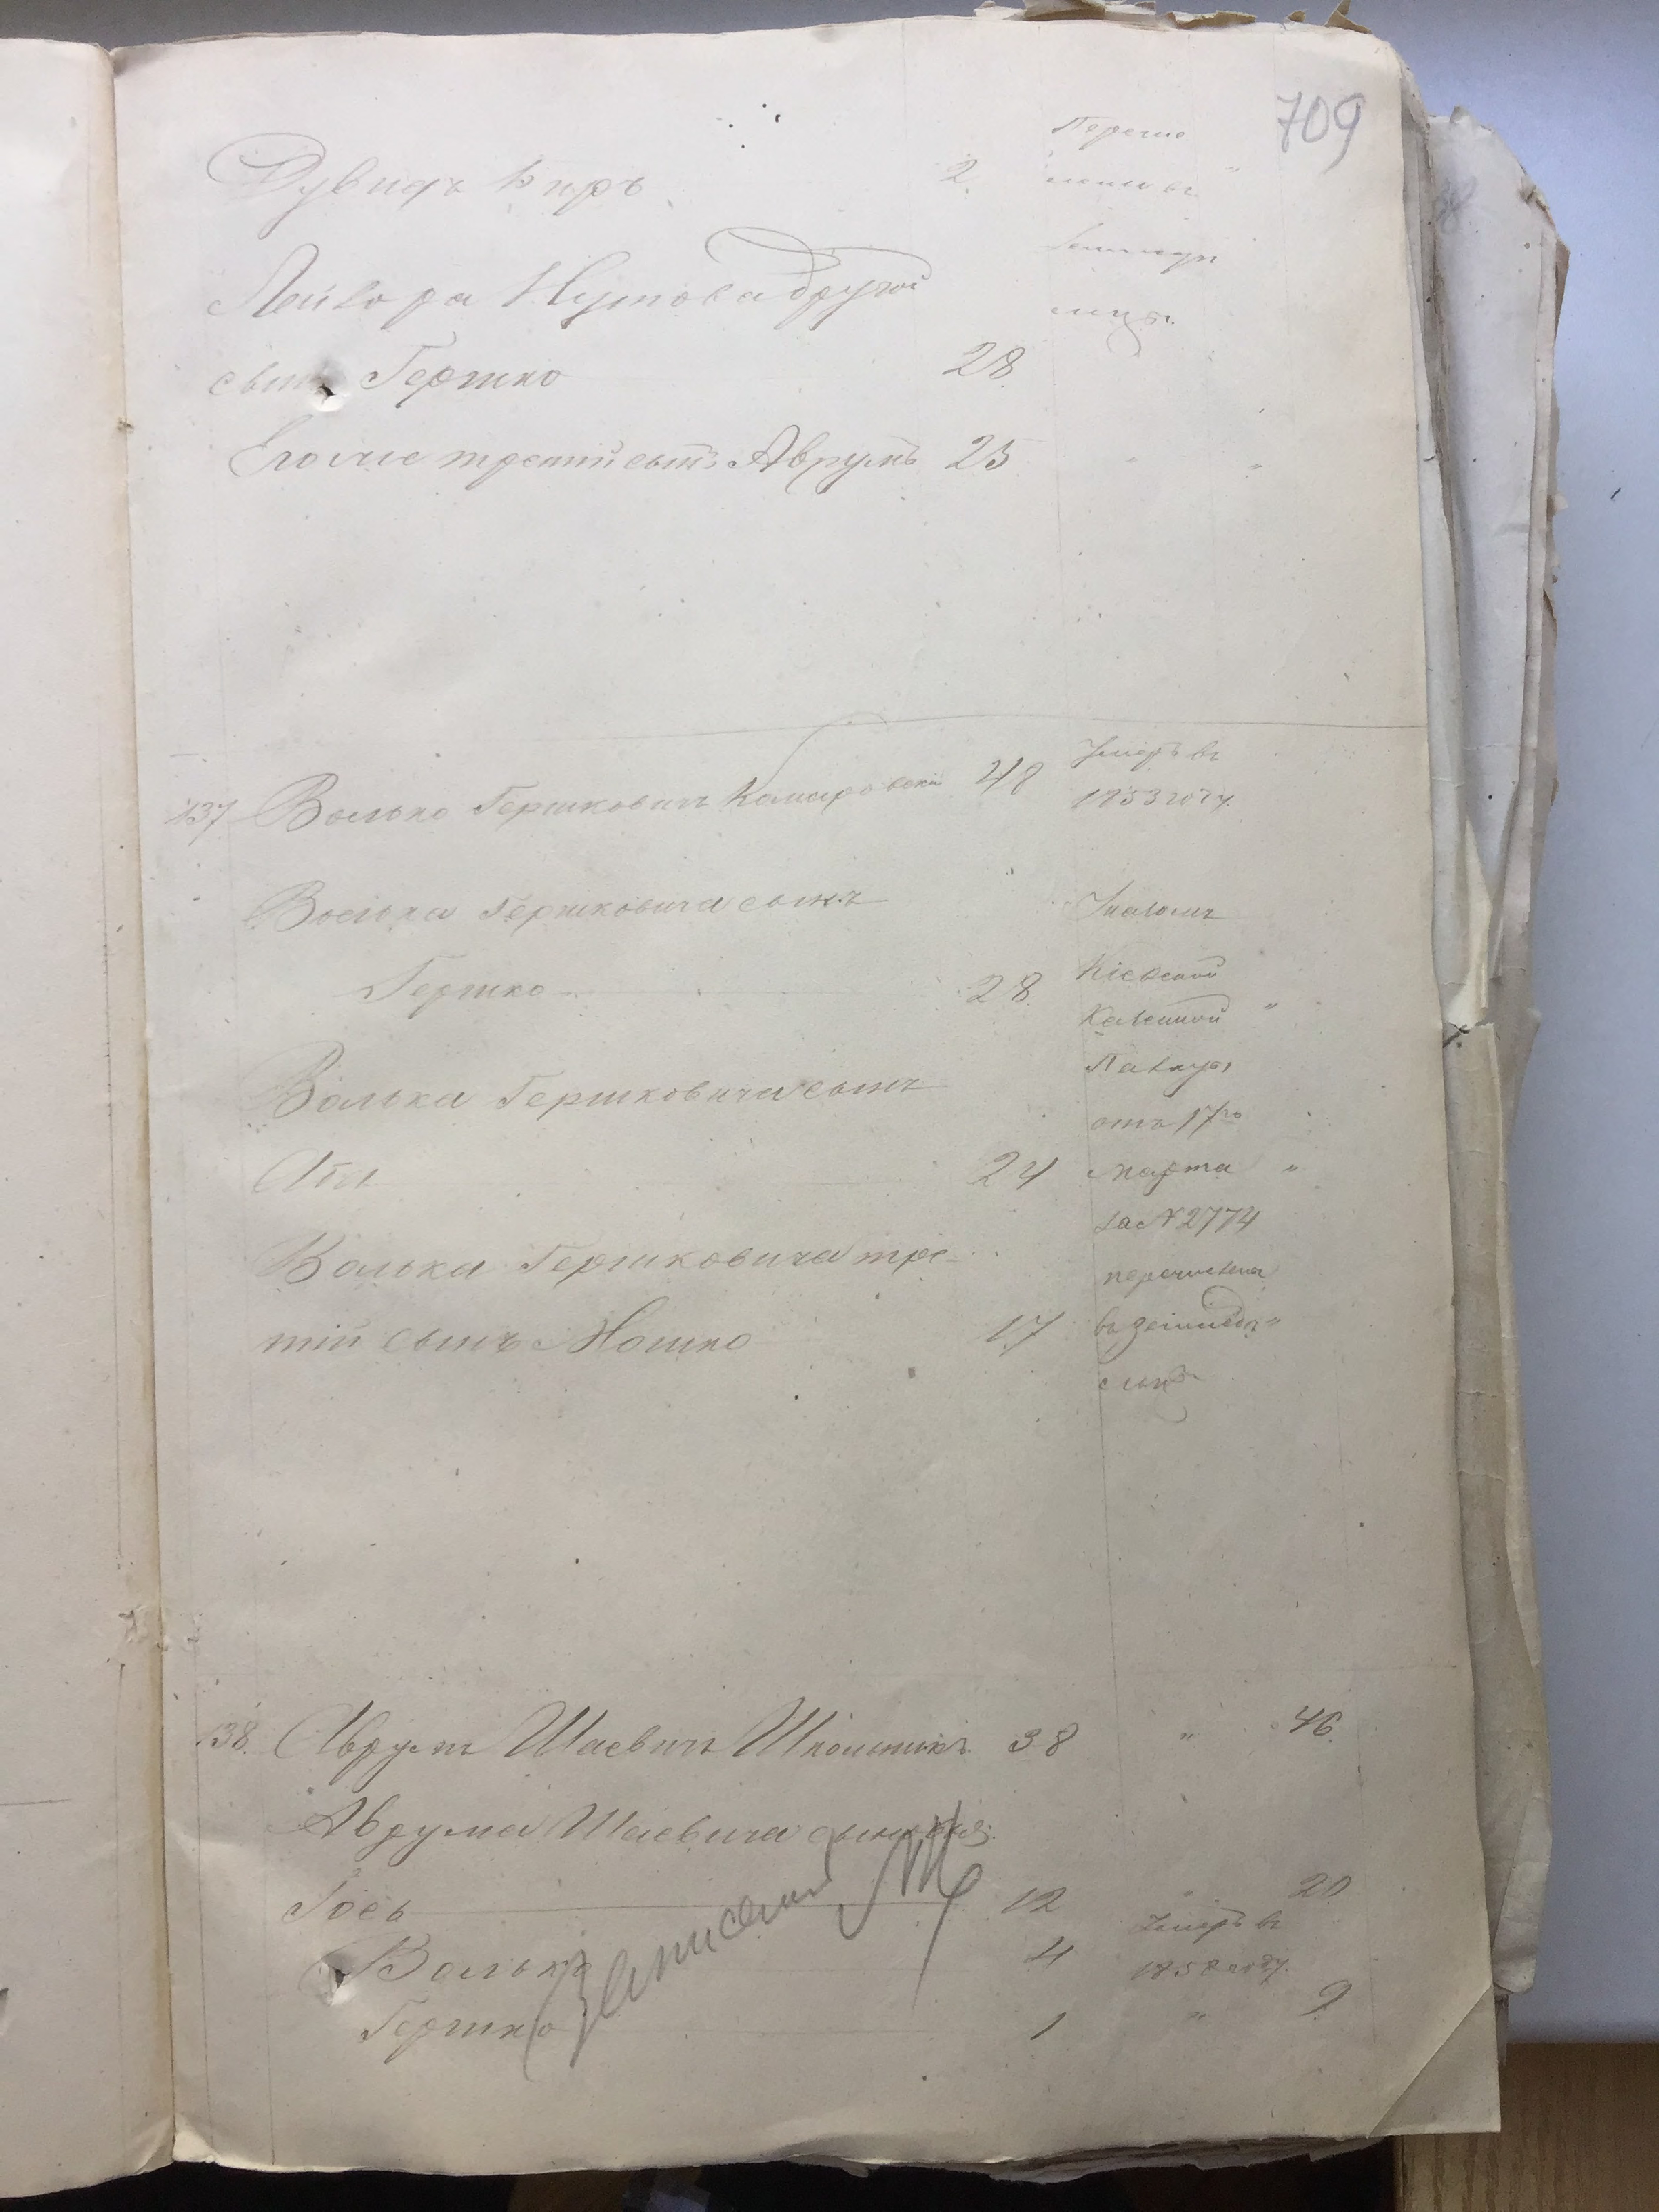 709
Дувидъ Беръ 2
Перечи
слены въ "
Лейзора Нутова другой
земледѣ
льцы.
сынъ Гершко 28
Его же третій сынъ Аврумъ 25 " "
137 Волько Гершковичъ Комаровскій 48
Умеръ въ
1853 году.
Волька Гершковича сынъ
Указомъ
Гершко 28
Кіевской
Казенной "
Волька Гершковича сынъ
Палаты
отъ 17го
24 марта "
за № 2774
Волька Гершковича тре-
перечислены
тій сынъ Мошко 17 въ земледѣ "
льцы
138. Аврумъ Шаевичъ Школьникъ 38 " 46.
Аврума Шаевича сыновья:
Іось 12 " 20
Волько 4
Умеръ въ
1858 году.
Гершко 1 " 9.